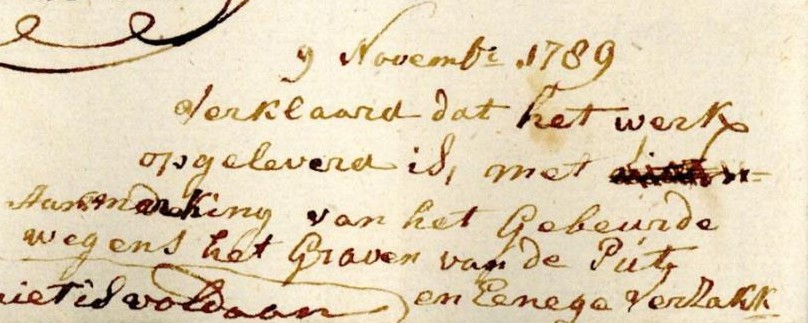 9 Novembr 1789
Verklaard dat het werk
opgeleverd is, met
Aanmerking van het Gebeurde
wegens het Graven van de Put,
niet is voldaan en Eenege Verzakk